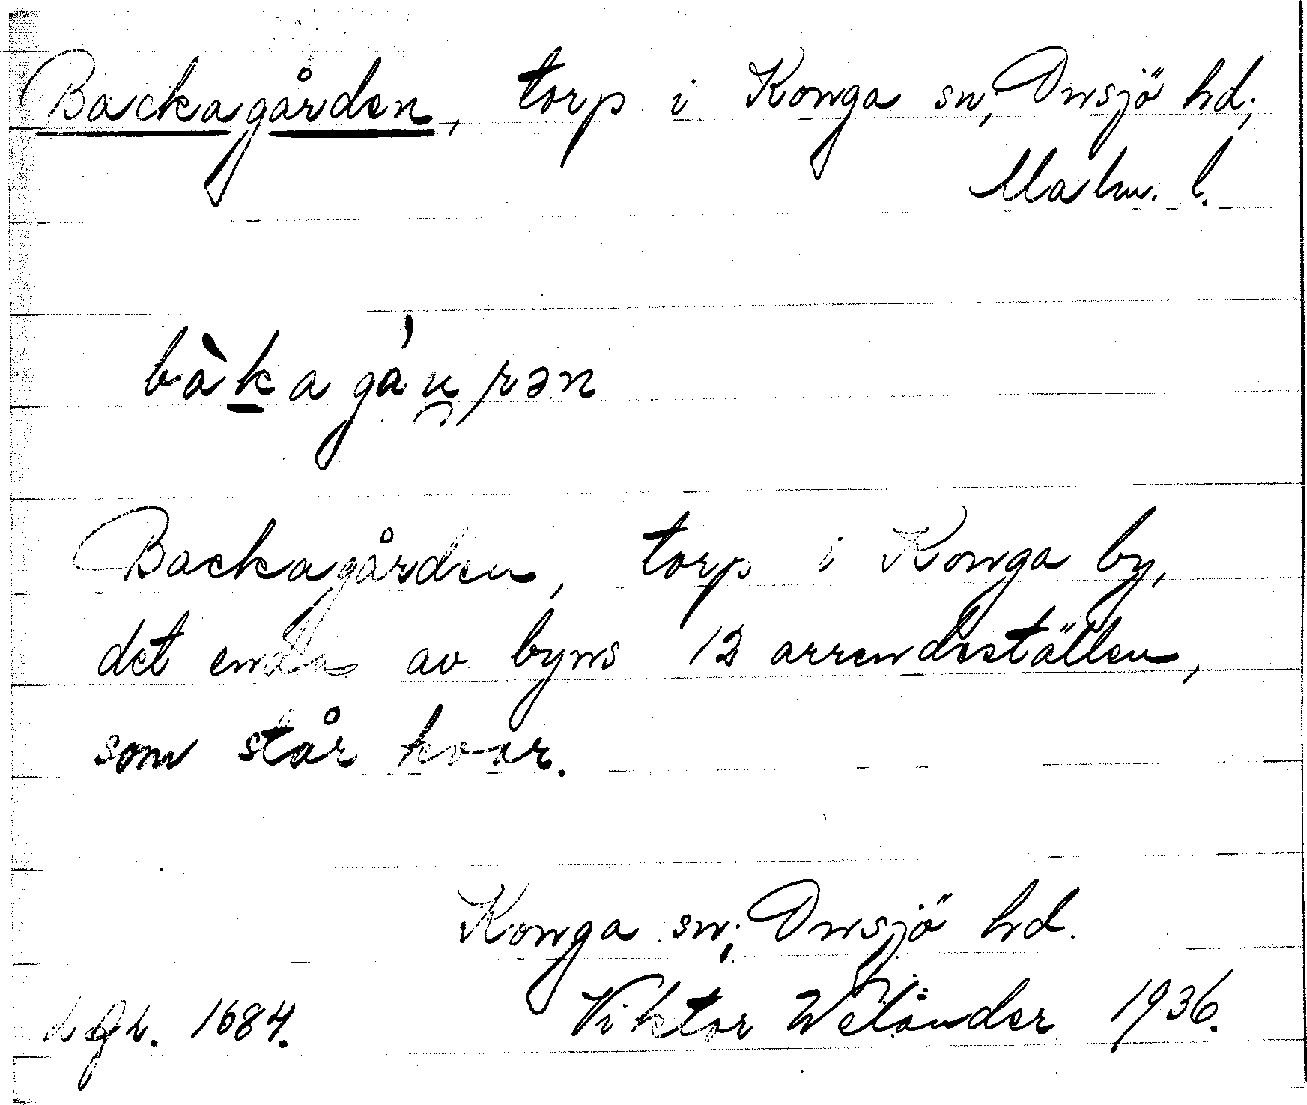 Backagården, torp i Konga sn, Onsjö hd,
Malm. l.
bàkagáu̯rən
Backagården, torp i Konga by,
det enda av byns 12 arrendeställen,
som står kvar.
Konga sn, Onsjö hd.
1684. Viktor Welander 1936.